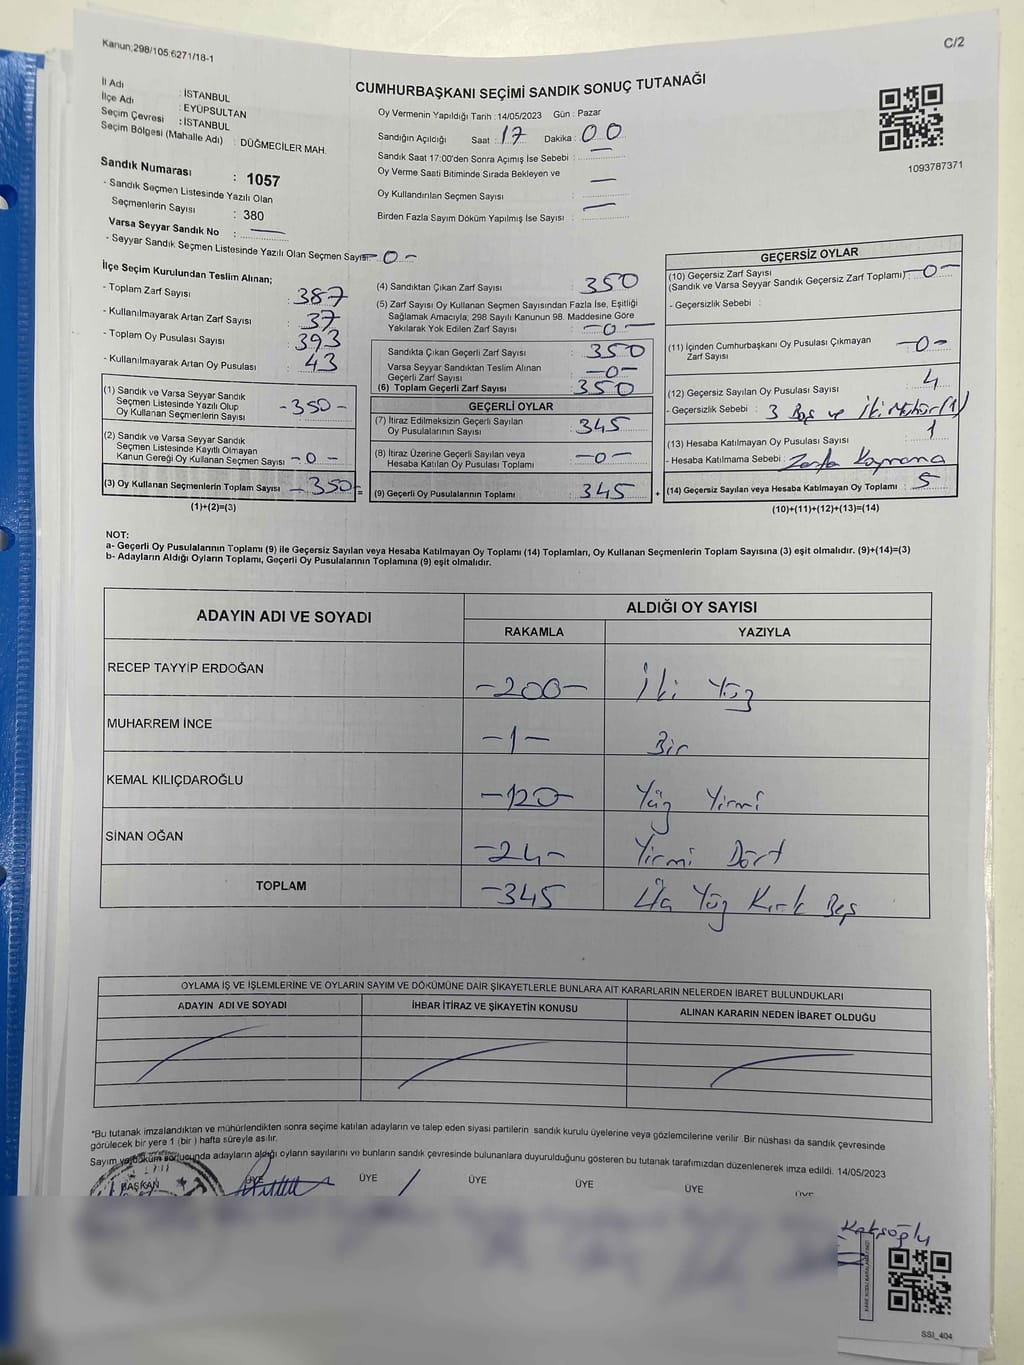 Kanun;298/105 6271/18-1
C/2
CUMHURBAŞKANI SEÇİMİ SANDIK SONUÇ TUTANAĞI
İl Adı : İSTANBUL
İlçe Adı : EYÜPSULTAN
Seçim Çevresi : İSTANBUL
Seçim Bölgesi (Mahalle Adı) : DÜĞMECİLER MAH.
Sandık Numarası : 1057
- Sandık Seçmen Listesinde Yazılı Olan
Seçmenlerin Sayısı : 380
Varsa Seyyar Sandık No : —
- Seyyar Sandık Seçmen Listesinde Yazılı Olan Seçmen Sayısı: - 0 -
Oy Vermenin Yapıldığı Tarih :14/05/2023 Gün : Pazar
Sandığın Açıldığı Saat : 17 Dakika : 00
Sandık Saat 17:00'den Sonra Açımış İse Sebebi : —
Oy Verme Saati Bitiminde Sırada Bekleyen ve
Oy Kullandırılan Seçmen Sayısı : —
Birden Fazla Sayım Döküm Yapılmış İse Sayısı : —
1093787371
İlçe Seçim Kurulundan Teslim Alınan;
- Toplam Zarf Sayısı : 387
- Kullanılmayarak Artan Zarf Sayısı : 37
- Toplam Oy Pusulası Sayısı : 393
- Kullanılmayarak Artan Oy Pusulası : 43
(1) Sandık ve Varsa Seyyar Sandık
Seçmen Listesinde Yazılı Olup
Oy Kullanan Seçmenlerin Sayısı : -350-
(2) Sandık ve Varsa Seyyar Sandık
Seçmen Listesinde Kayıtlı Olmayan
Kanun Gereği Oy Kullanan Seçmen Sayısı : -0-
(3) Oy Kullanan Seçmenlerin Toplam Sayısı : -350- =
(1)+(2)=(3)
(4) Sandıktan Çıkan Zarf Sayısı : 350
(5) Zarf Sayısı Oy Kullanan Seçmen Sayısından Fazla İse, Eşitliği
Sağlamak Amacıyla; 298 Sayılı Kanunun 98. Maddesine Göre
Yakılarak Yok Edilen Zarf Sayısı : -0-
Sandıkta Çıkan Geçerli Zarf Sayısı : 350
Varsa Seyyar Sandıktan Teslim Alınan
Geçerli Zarf Sayısı : -0-
(6) Toplam Geçerli Zarf Sayısı : 350
GEÇERLİ OYLAR
(7) İtiraz Edilmeksizin Geçerli Sayılan
Oy Pusulalarının Sayısı : 345
(8) İtiraz Üzerine Geçerli Sayılan veya
Hesaba Katılan Oy Pusulası Toplamı : -0-
(9) Geçerli Oy Pusulalarının Toplamı : 345 +
GEÇERSİZ OYLAR
(10) Geçersiz Zarf Sayısı
(Sandık ve Varsa Seyyar Sandık Geçersiz Zarf Toplamı) : -0-
- Geçersizlik Sebebi :
(11) İçinden Cumhurbaşkanı Oy Pusulası Çıkmayan
Zarf Sayısı : -0-
(12) Geçersiz Sayılan Oy Pusulası Sayısı : 4
- Geçersizlik Sebebi : 3 Boş ve İki Mühür(1)
(13) Hesaba Katılmayan Oy Pusulası Sayısı : 1
- Hesaba Katılmama Sebebi :
(14) Geçersiz Sayılan veya Hesaba Katılmayan Oy Toplamı : 5
(10)+(11)+(12)+(13)=(14)
NOT:
a- Geçerli Oy Pusulalarının Toplamı (9) ile Geçersiz Sayılan veya Hesaba Katılmayan Oy Toplamı (14) Toplamları, Oy Kullanan Seçmenlerin Toplam Sayısına (3) eşit olmalıdır. (9)+(14)=(3)
b- Adayların Aldığı Oyların Toplamı, Geçerli Oy Pusulalarının Toplamına (9) eşit olmalıdır.
ADAYIN ADI VE SOYADI ALDIĞI OY SAYISI
RAKAMLA YAZIYLA
RECEP TAYYİP ERDOĞAN -200- İki Yüz
MUHARREM İNCE -1- Bir
KEMAL KILIÇDAROĞLU -120- Yüz Yirmi
SİNAN OĞAN -24- Yirmi Dört
TOPLAM -345 Yüz Kırk Beş
OYLAMA İŞ VE İŞLEMLERİNE VE OYLARIN SAYIM VE DÖKÜMÜNE DAİR ŞİKAYETLERLE BUNLARA AİT KARARLARIN NELERDEN İBARET BULUNDUKLARI
ADAYIN ADI VE SOYADI İHBAR İTİRAZ VE ŞİKAYETİN KONUSU ALINAN KARARIN NEDEN İBARET OLDUĞU
*Bu tutanak imzalandıktan ve mühürlendikten sonra seçime katılan adayların ve talep eden siyasi partilerin sandık kurulu üyelerine veya gözlemcilerine verilir. Bir nüshası da sandık çevresinde
görülecek bir yere 1 (bir ) hafta süreyle asılır.
Sayım ve döküm sonucunda adayların aldığı oyların sayılarını ve bunların sandık çevresinde bulunanlara duyurulduğunu gösteren bu tutanak tarafımızdan düzenlenerek imza edildi. 14/05/2023
BAŞKAN ÜYE ÜYE ÜYE ÜYE ÜYE ÜYE
SSI_404